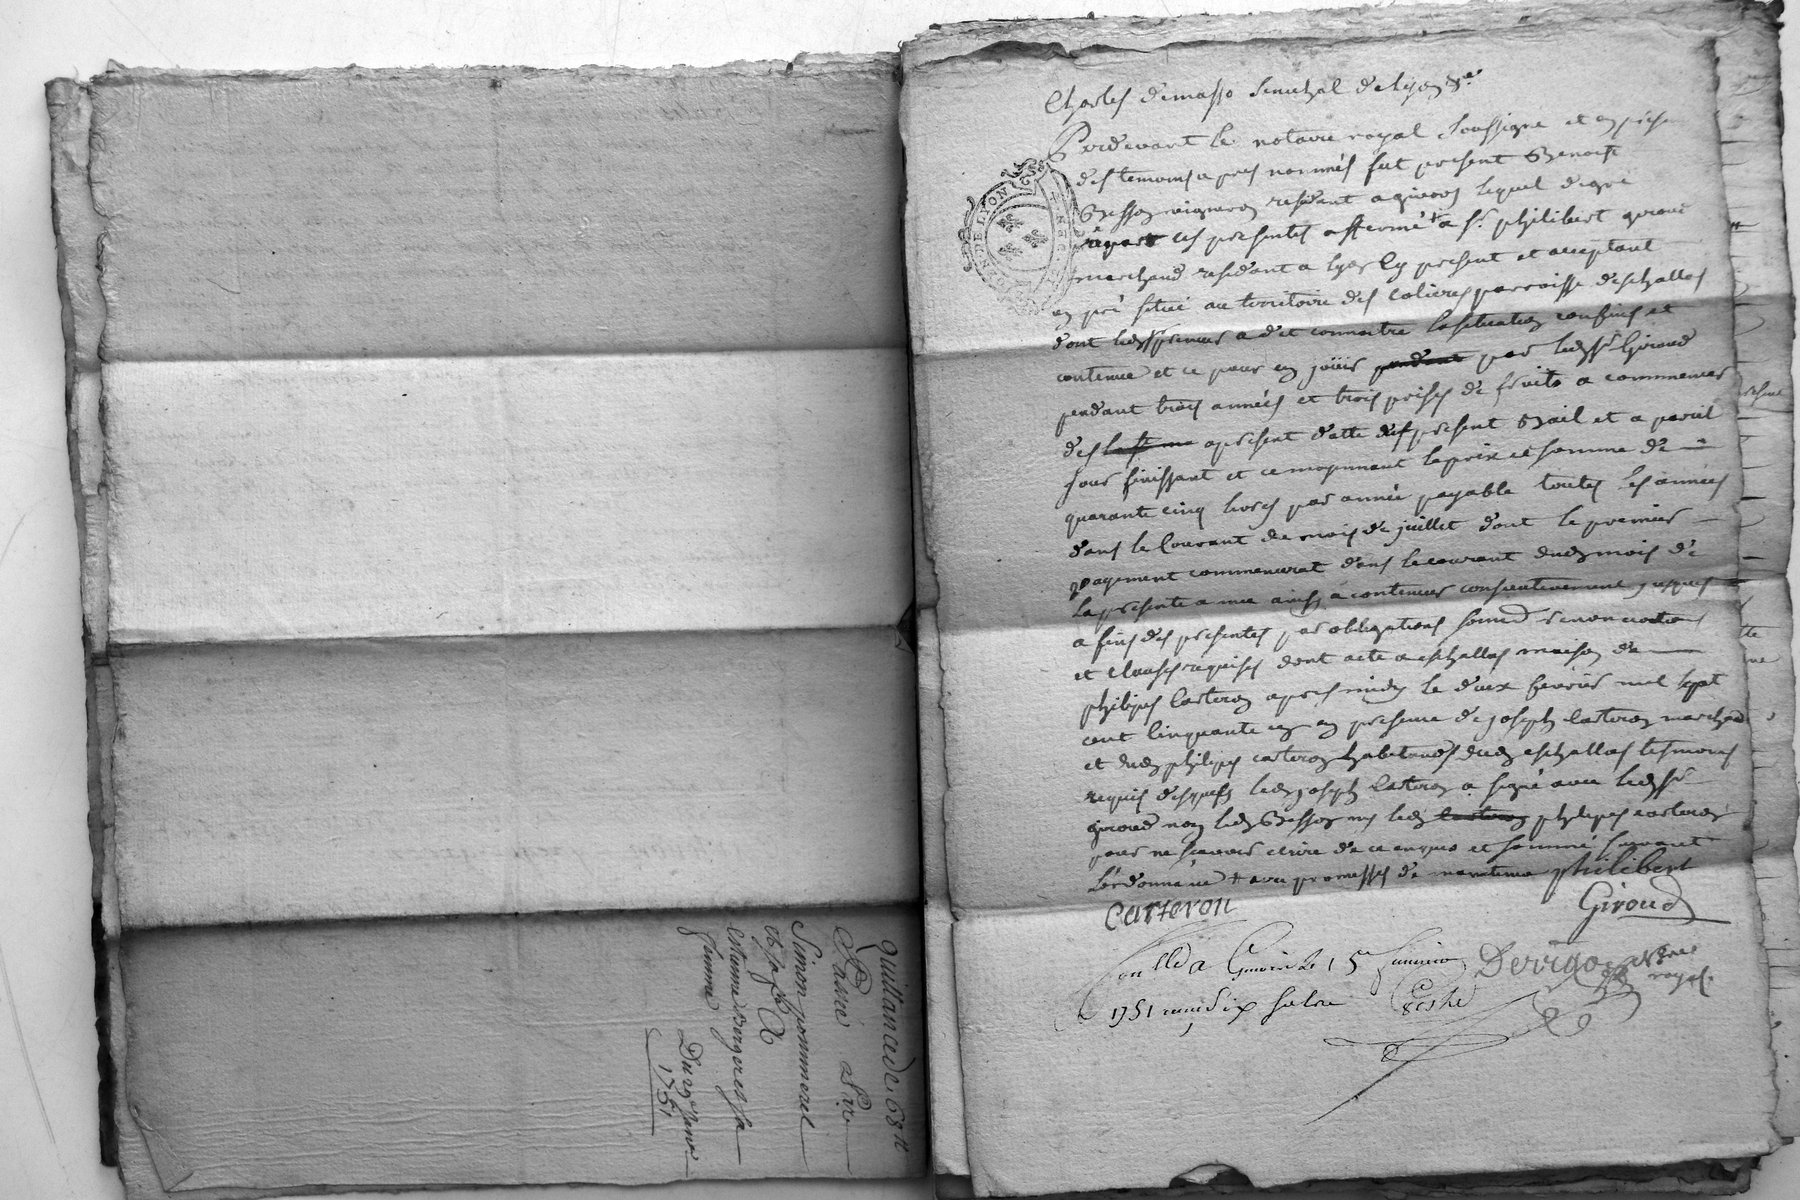 quittance de 68 lt
Passé Par
Simon pommerel
estienne Bergeron sa
femme
Du 29 Janv.
1751
Charles demasso senechal de lyon &.e
Pardevant le notaire royal soussigné et en présen
des temoins apres nommés fut present Benoist
Besson vigneron residant a givors lequel de gré
a par ces presentes affermé + a s.r philibert giroud
marchand residant a lyon Cy present et acceptant
un pré situé au territoire des colieres parroisse deschallas
dont led s.r preneur a dit connoitre la situation confins et
contenue et ce pour en joüir pendant par led s.r Giroud
pendant trois années et trois prises de fruits a commencer
des apresent datte des present Bail et a pareil
jour finissant et ce moyennant le prix et somme de
quarante cinq livres par année payable toutes les années
dans le Courant du mois de juillet dont le premier
payement commencerat dans le courant dud mois de
la presente année ainsy a continuer consecutivement jusques
a fins des presentes par obligations soumd renonciations
et clauses requises dont acte a eschallas maison de
philipes Carteron apres midy le deux fevrier mil sept
cent cinquante un en presence de joseph Carteron marchand
et dud philipes carteron habitants dud eschallas temoins
requis desquels led joseph Carteron a signé avec led s.r
giroud non led Besson ny led carteron philipes carteron
pour ne sçavoir ecrire de ce enquis et sommé suivant
l'ordonnance + avec promesses de maintenue philibert
Carteron
Giroud
Con llé a Givors le 15e fevrier
1751 reçu dix sols
Derrigo n.re
royal
GENE DE LYON